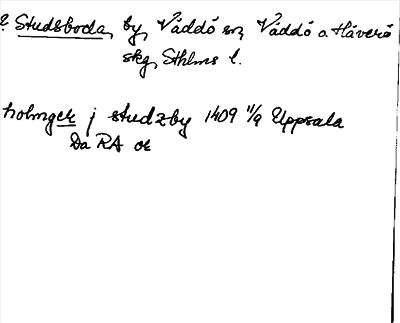 ? Studsboda, by, Väddö sn, Väddö o Häverö
skg, Sthlms l.
holmger j studzby 1409 11/9 Uppsala
Da RA or